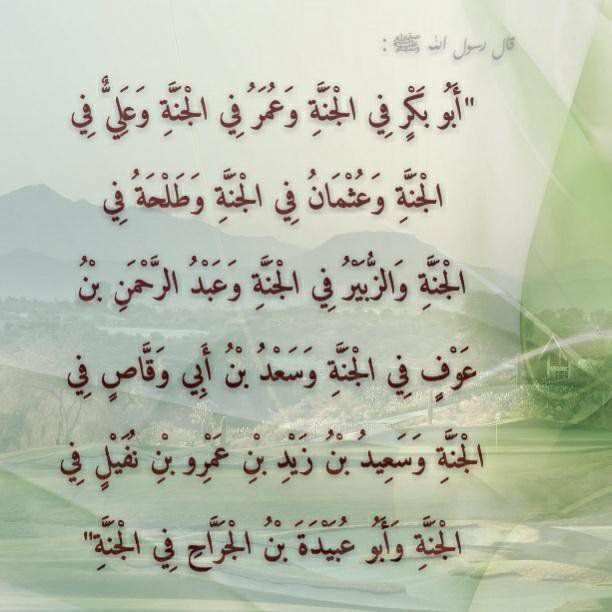 قال رسول الله ﷺ :
"أَبُو بَكْرٍ فِي الْجَنَّةِ وَعُمَرُ فِي الْجَنَّةِ وَعَلِيٌّ فِي
الْجَنَّةِ وَعُثْمَانُ فِي الْجَنَّةِ وَطَلْحَةُ فِي
الْجَنَّةِ وَالزُّبَيْرُ فِي الْجَنَّةِ وَعَبْدُ الرَّحْمَنِ بْنُ
عَوْفٍ فِي الْجَنَّةِ وَسَعْدُ بْنُ أَبِي وَقَّاصٍ فِي
الْجَنَّةِ وَسَعِيدُ بْنُ زَيْدِ بْنِ عَمْرِو بْنِ نُفَيْلٍ فِي
الْجَنَّةِ وَأَبُو عُبَيْدَةَ بْنُ الْجَرَّاحِ فِي الْجَنَّةِ"